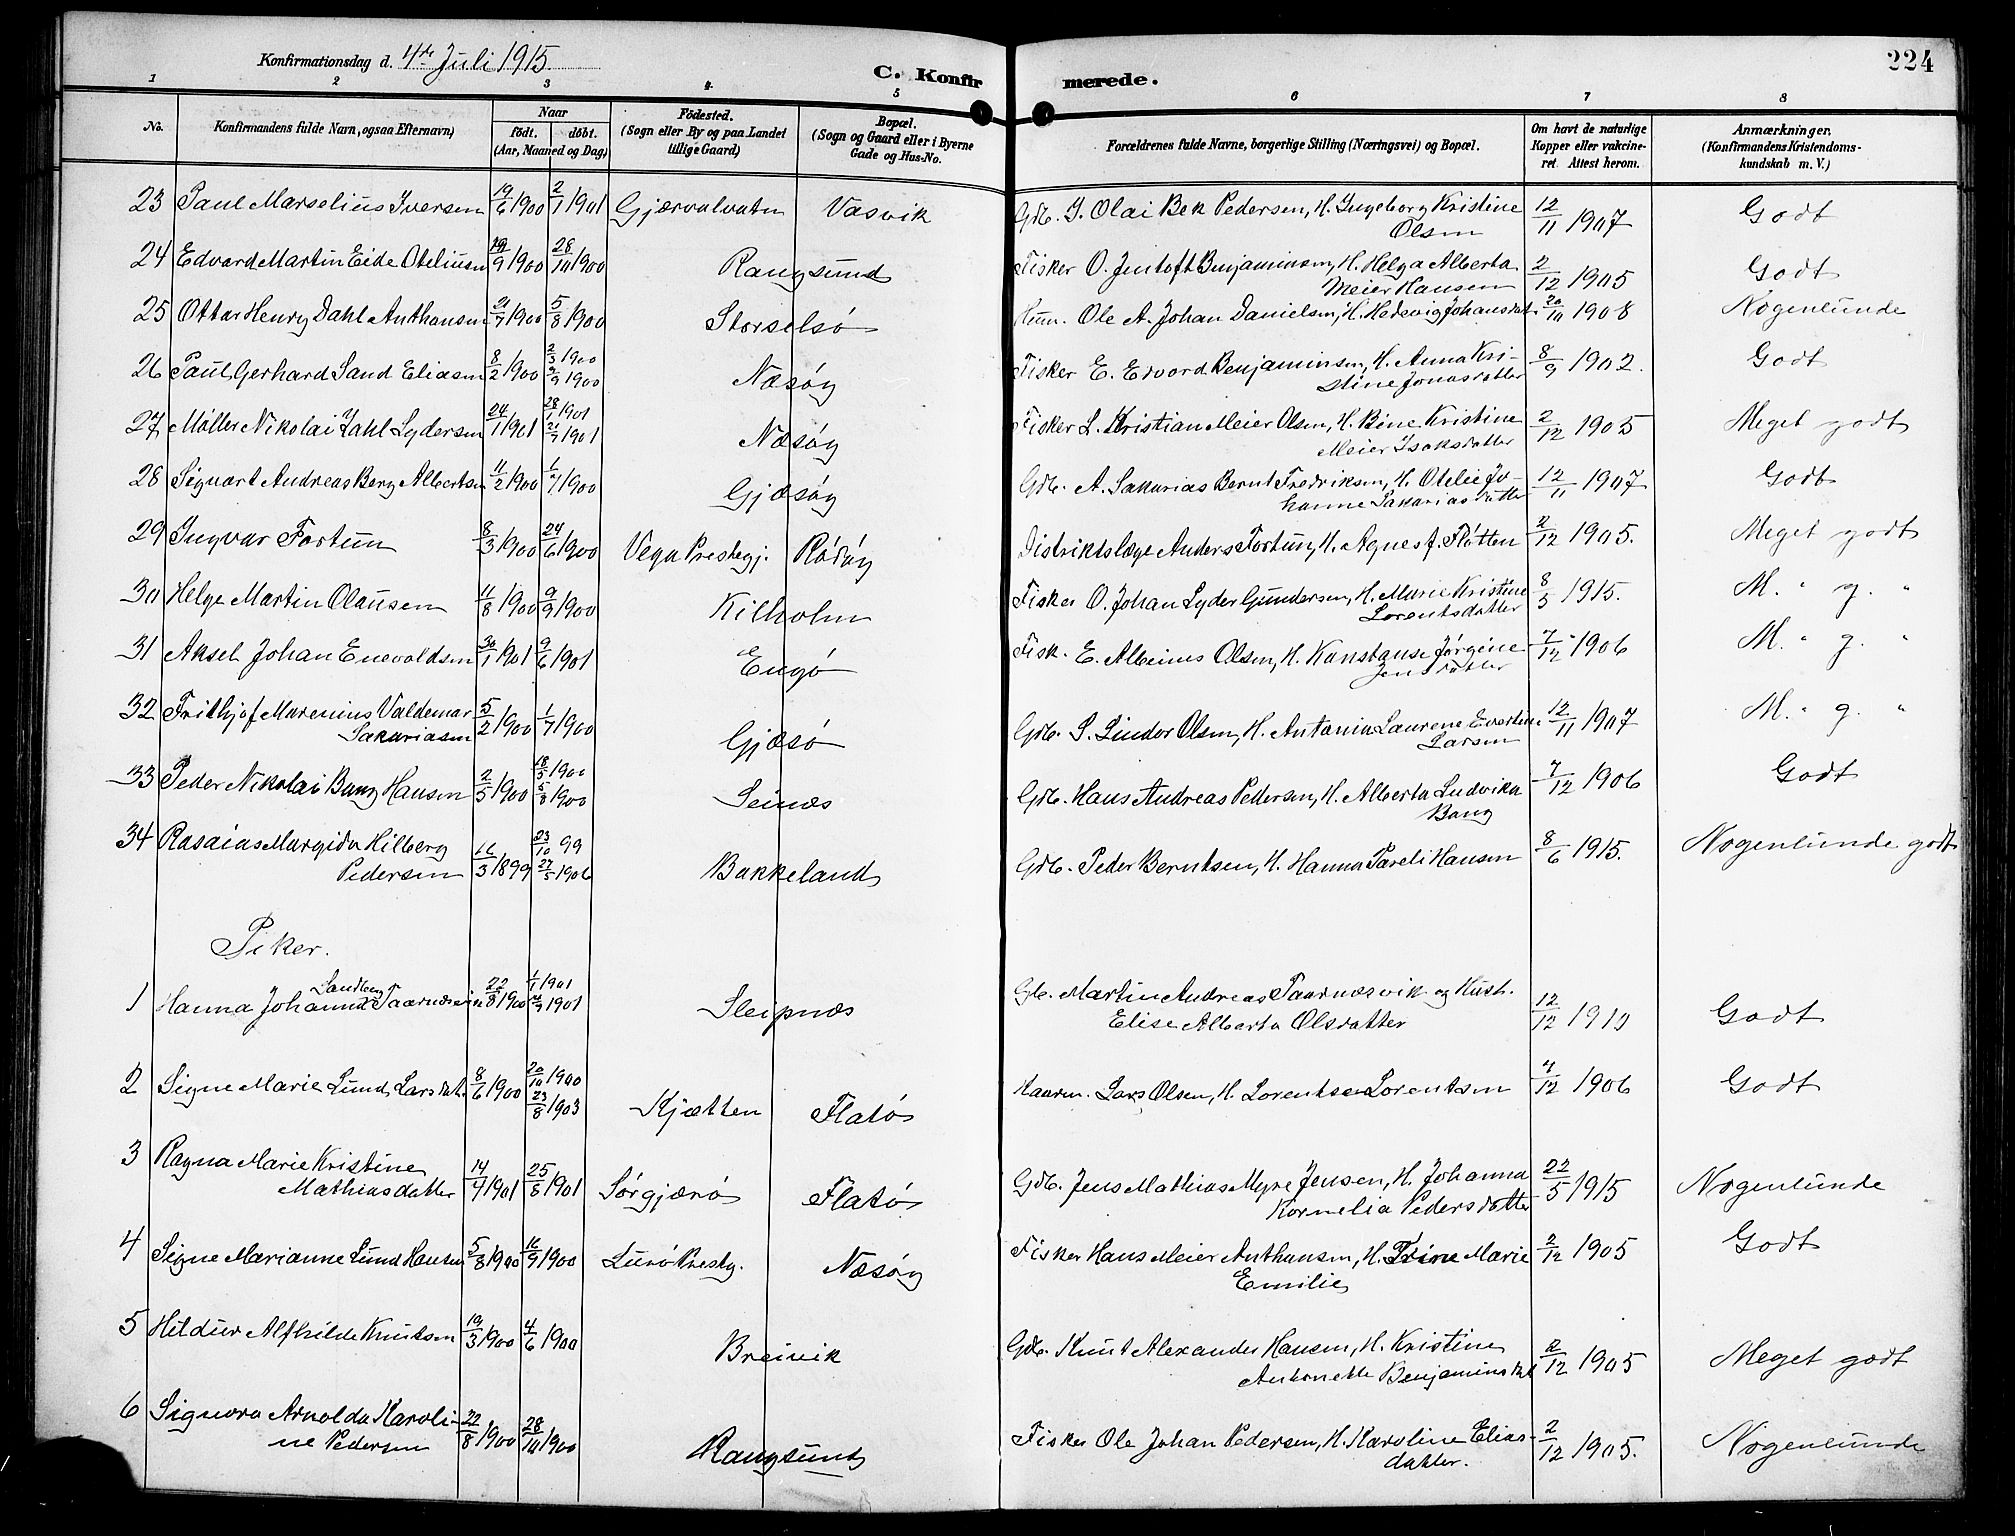 Konfirmationsdag d. 4de Juli 1915.
C. Konfirmerede.
224
1 2 3 4 5 6 7 8
No.
Konfirmandens fulde Navn, ogsaa Efternavn)
Naar
født. døbt.
(Aar, Maaned og Dag)
Fødested.
(Sogn eller By og paa Landet
tillige Gaard)
Bopæl.
(Sogn og Gaard eller i Byerne
Gade og Hus-No.
Forældrenes fulde Navne, borgerlige Stilling (Næringsvei) og Bopæl.
Om havt de naturlige
Kopper eller vakcine-
ret Attest herom.
Anmærkninger.
(Konfirmandens Kristendoms-
kundskab m. V.)
23 Paul Marselius Iversen 19/6 1900 2/1 1901 Gjærvalvaten Vasvik Gdb. I. Olai Bek Pedersen, H. Ingeborg Kristine 12/11 1907 Godt
Olsen
24 Edvard Martin Eide Oteliusen 19/9 1900 28/10 1900 Rangsund Fisker O. Jentoft Benjaminsen, H. Helga Alberta 2/12 1905 Godt
Meier Hansen
25 Ottar Henry Dahl Anthonsen 21/7 1900 5/8 1900 Storselsø Hum. Ole A. Johan Danielsen, H. Hedevig Johansdat. 20/10 1908 Nogenlunde
26 Paul Gerhard Sand Eliasen 8/2 1900 2/3 1900 Næsøy Fisker E. Edvard Benjaminsen, H. Anna Kri- 8/9 1902. Godt
9/9 1900 stine Jonasdatter
27 Møller Nikolai Zahl Lydersen 24/1 1901 28/1 1901 Næsøy Fisker L. Kristian Meier Olsen, H. Bine Kristine 2/12 1905 Meget godt
21/7 1901 Meier Isaksdatter
28 Sigvart Andreas Berg Albertsen 11/2 1900 1/7 1900 Gjæsøy Gdb. A. Sakarias Bernt Fredriksen, H. Otelie Jo- 12/11 1907 Godt
hanne Sakariasdatter
29 Ingvar Fortun 8/3 1900 24/6 1900 Vega Prestegj. Rødøy Distriktslæge Anders Fortun, H. Agnes f. Fløtten 2/12 1905. Meget godt
30 Helge Martin Olausen 11/8 1900 9/9 1900 Kilholm Fisker O. Johan Lyder Gundersen, H. Marie Kristine 8/5 1915. M. " g. "
Lorentsdatter
31 Aksel Johan Enevoldsen 30/1 1901 9/6 1901 Engø Fisk. E. Albinus Olsen, H. Konstanse Jørgine 7/12 1906 M. " g. "
Jensdatter
32 Frithjof Marenius Valdemar 5/2 1900 1/7 1900 Gjæsø Gdb. S. Lindor Olsen, H. Antonia Laurene Evertine 12/11 1907 M. " g. "
Sakariasen Larsen
33 Peder Nikolai Bang Hansen 2/5 1900 18/5 1900 Seinæs Gdb. Hans Andreas Pedersen, H. Alberta Ludvika 7/12 1906 Godt
5/8 1900 Bang
34 Rasaias Margido Hilberg 16/3 1899 23/10 99 Bakkeland Gdb. Peder Berntsen, H. Hanna Pareli Hansen 8/6 1915. Nogenlunde godt
Pedersen 27/5 1906
Piker.
Sandberg
1 Hanna Johanna Paarnæsvik 22/8 1900 1/1 1901 Sleipnæs Gb. Martin Andreas Paarnæsvik og Hust. 12/12 1910 Godt
1901 Elise Alberta Olsdatter
2 Signe Marie Lund Larsdat. 8/6 1900 20/10 1900 Kjætten Flatø Kaarm. Lars Olsen, H. Lorentse Lorentsen 7/12 1906 Godt
23/8 1903
3 Ragna Marie Kristine 14/7 1901 25/8 1901 Sørgjærø Flatø Gdb. Jens Mathias Myre Jensen, H. Johanna 22/5 1915 Nogenlunde
Mathiasdatter Kornelia Pedersdatter
4 Signe Marianne Lund Hansen 5/8 1900 16/9 1900 Lurø Prestg. Næsøy Fisker Hans Meier Anthonsen, H. Trine Marie 2/12 1905 Godt
Emilie
5 Hildur Alfhilde Knutsen 19/3 1900 4/6 1900 Breivik Gdb. Knut Alexander Hansen, H. Kristine 2/12 1905 Meget godt
Antonette Benjaminsdat.
6 Signora Arnolda Karoli- 22/8 1900 28/10 1900 Rangsund Fisker Ole Johan Pedersen, H. Karoline Elias- 2/12 1905. Nogenlunde
ne Pedersen datter.